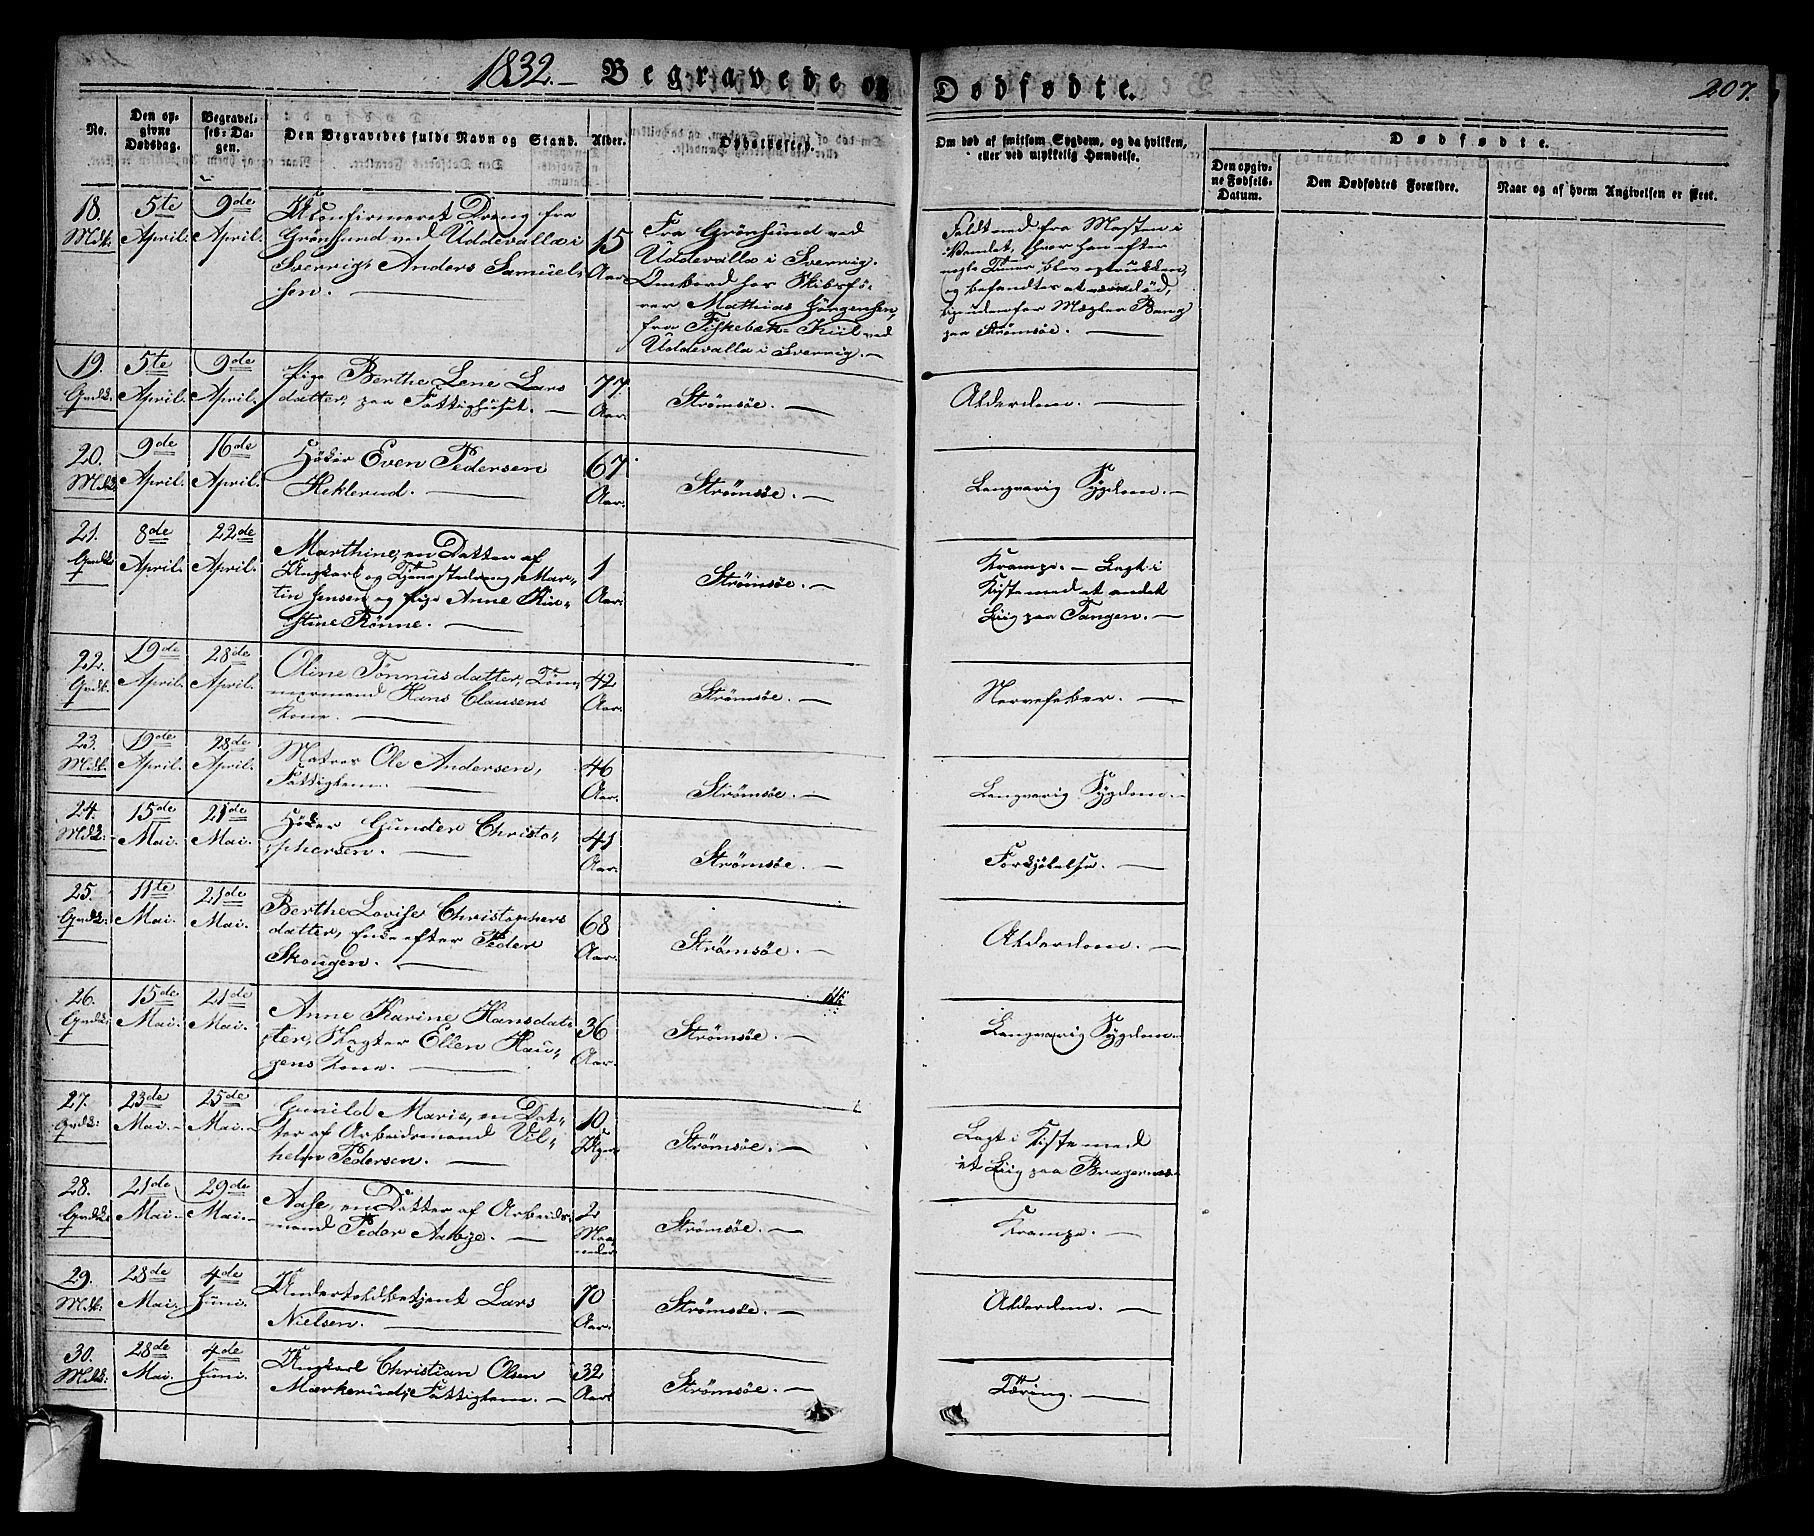 1832. Begravede og Dødfødte. 207.
No.
Den opgivne Dødsdag.
Begravelses-Dagen.
Den Begravedes fulde Navn og Stand.
Alder.
Opholdssted.
Om død af smitsom Sygdom, og da hvilken, eller ved ulykkelig Hændelse.
Dødfødte.
Den opgivne Fødsels-Datum.
Den Dødfødtes Forældre.
Naar og af hvem Angivelsen er skeet.
18. Mdk:
5te April.
9de April.
Ukonfirmeret Dreng fra
Grönsund ved Uddevalla i
Sverrig, Anders Samuel-
sen.
15 Aar.
Fra Grönsund ved
Uddevalla i Sverrig.
Ombord hos Skibsfö-
rer Mathias Jörgensen,
fra Fiskebæk Kiil ved
Uddevalla i Sverrig.
Faldt ned fra Masten i
Vandet, hvor han efter
nogle Timer blev optrukken,
og befandtes at være död,
udenfor Mægler Bang
paa Strømsøe.
19. Qvdk:
5te April.
9de April.
Pige Berthe Lene Lars
datter, paa Fattighuset.
77 Aar.
Strømsøe.
Alderdom.
20. Mdk:
9de April.
16de April.
Höker Even Pedersen
Heklerud.
67 Aar.
Strømsøe.
Langvarig Sygdom.
21. Qvdk:
8de April.
22de April.
Marthine, en Datter af
Ungkarl og Tjenestedreng Mar-
tin Jensen og Pige Anne Kir-
stine Rönne.
1 Aar.
Strømsøe.
Krampe. Lagt i
Kiste med et andet
Liig paa Tangen.
22. Qvdk:
19de April.
28de April.
Oline Tönnusdatter, Töm-
mermand Hans Clausens
Kone.
42 Aar.
Strømsøe.
Nervefeber.
23. Mdk:
19de April.
28de April.
Matros Ole Andersen,
Fattiglem.
46 Aar.
Strømsøe.
Langvarig Sygdom.
24. Mdk:
15de Mai.
21de Mai.
Höker Gunder Christo-
phersen.
41 Aar.
Strømsøe.
Forkjölelse.
25. Qvdk:
11te Mai.
21de Mai.
Berthe Lovise Christophers
datter, Enke efter Peder
Skougen.
68 Aar.
Strømsøe.
Alderdom.
26. Qvdk:
15de Mai.
21de Mai.
Anne Karine Hansdat-
ter, Ellen Hau-
gens Kone.
36 Aar.
Strømsøe.
Langvarig Sygdom.
27. Qvdk:
23de Mai.
25de Mai.
Gunild Marie, en Dat-
ter af Arbeidsmand Vil-
helm Pedersen.
10 Uger.
Strømsøe.
Lagt i Kiste med
et Liig paa Bragernæs.
28. Qvdk:
21de Mai.
29de Mai.
Aase, en Datter af Arbeids-
mand Peder Aabye.
2 Maaneder.
Strømsøe.
Krampe.
29. Mdk:
28de Mai.
4de Juni.
Undertoldbetjent Lars
Nielsen.
70 Aar.
Strømsøe.
Alderdom.
30. Mdk:
28de Mai.
4de Juni.
Ungkarl Christian Olsen
Fattiglem.
32 Aar.
Strømsøe.
Tæring.